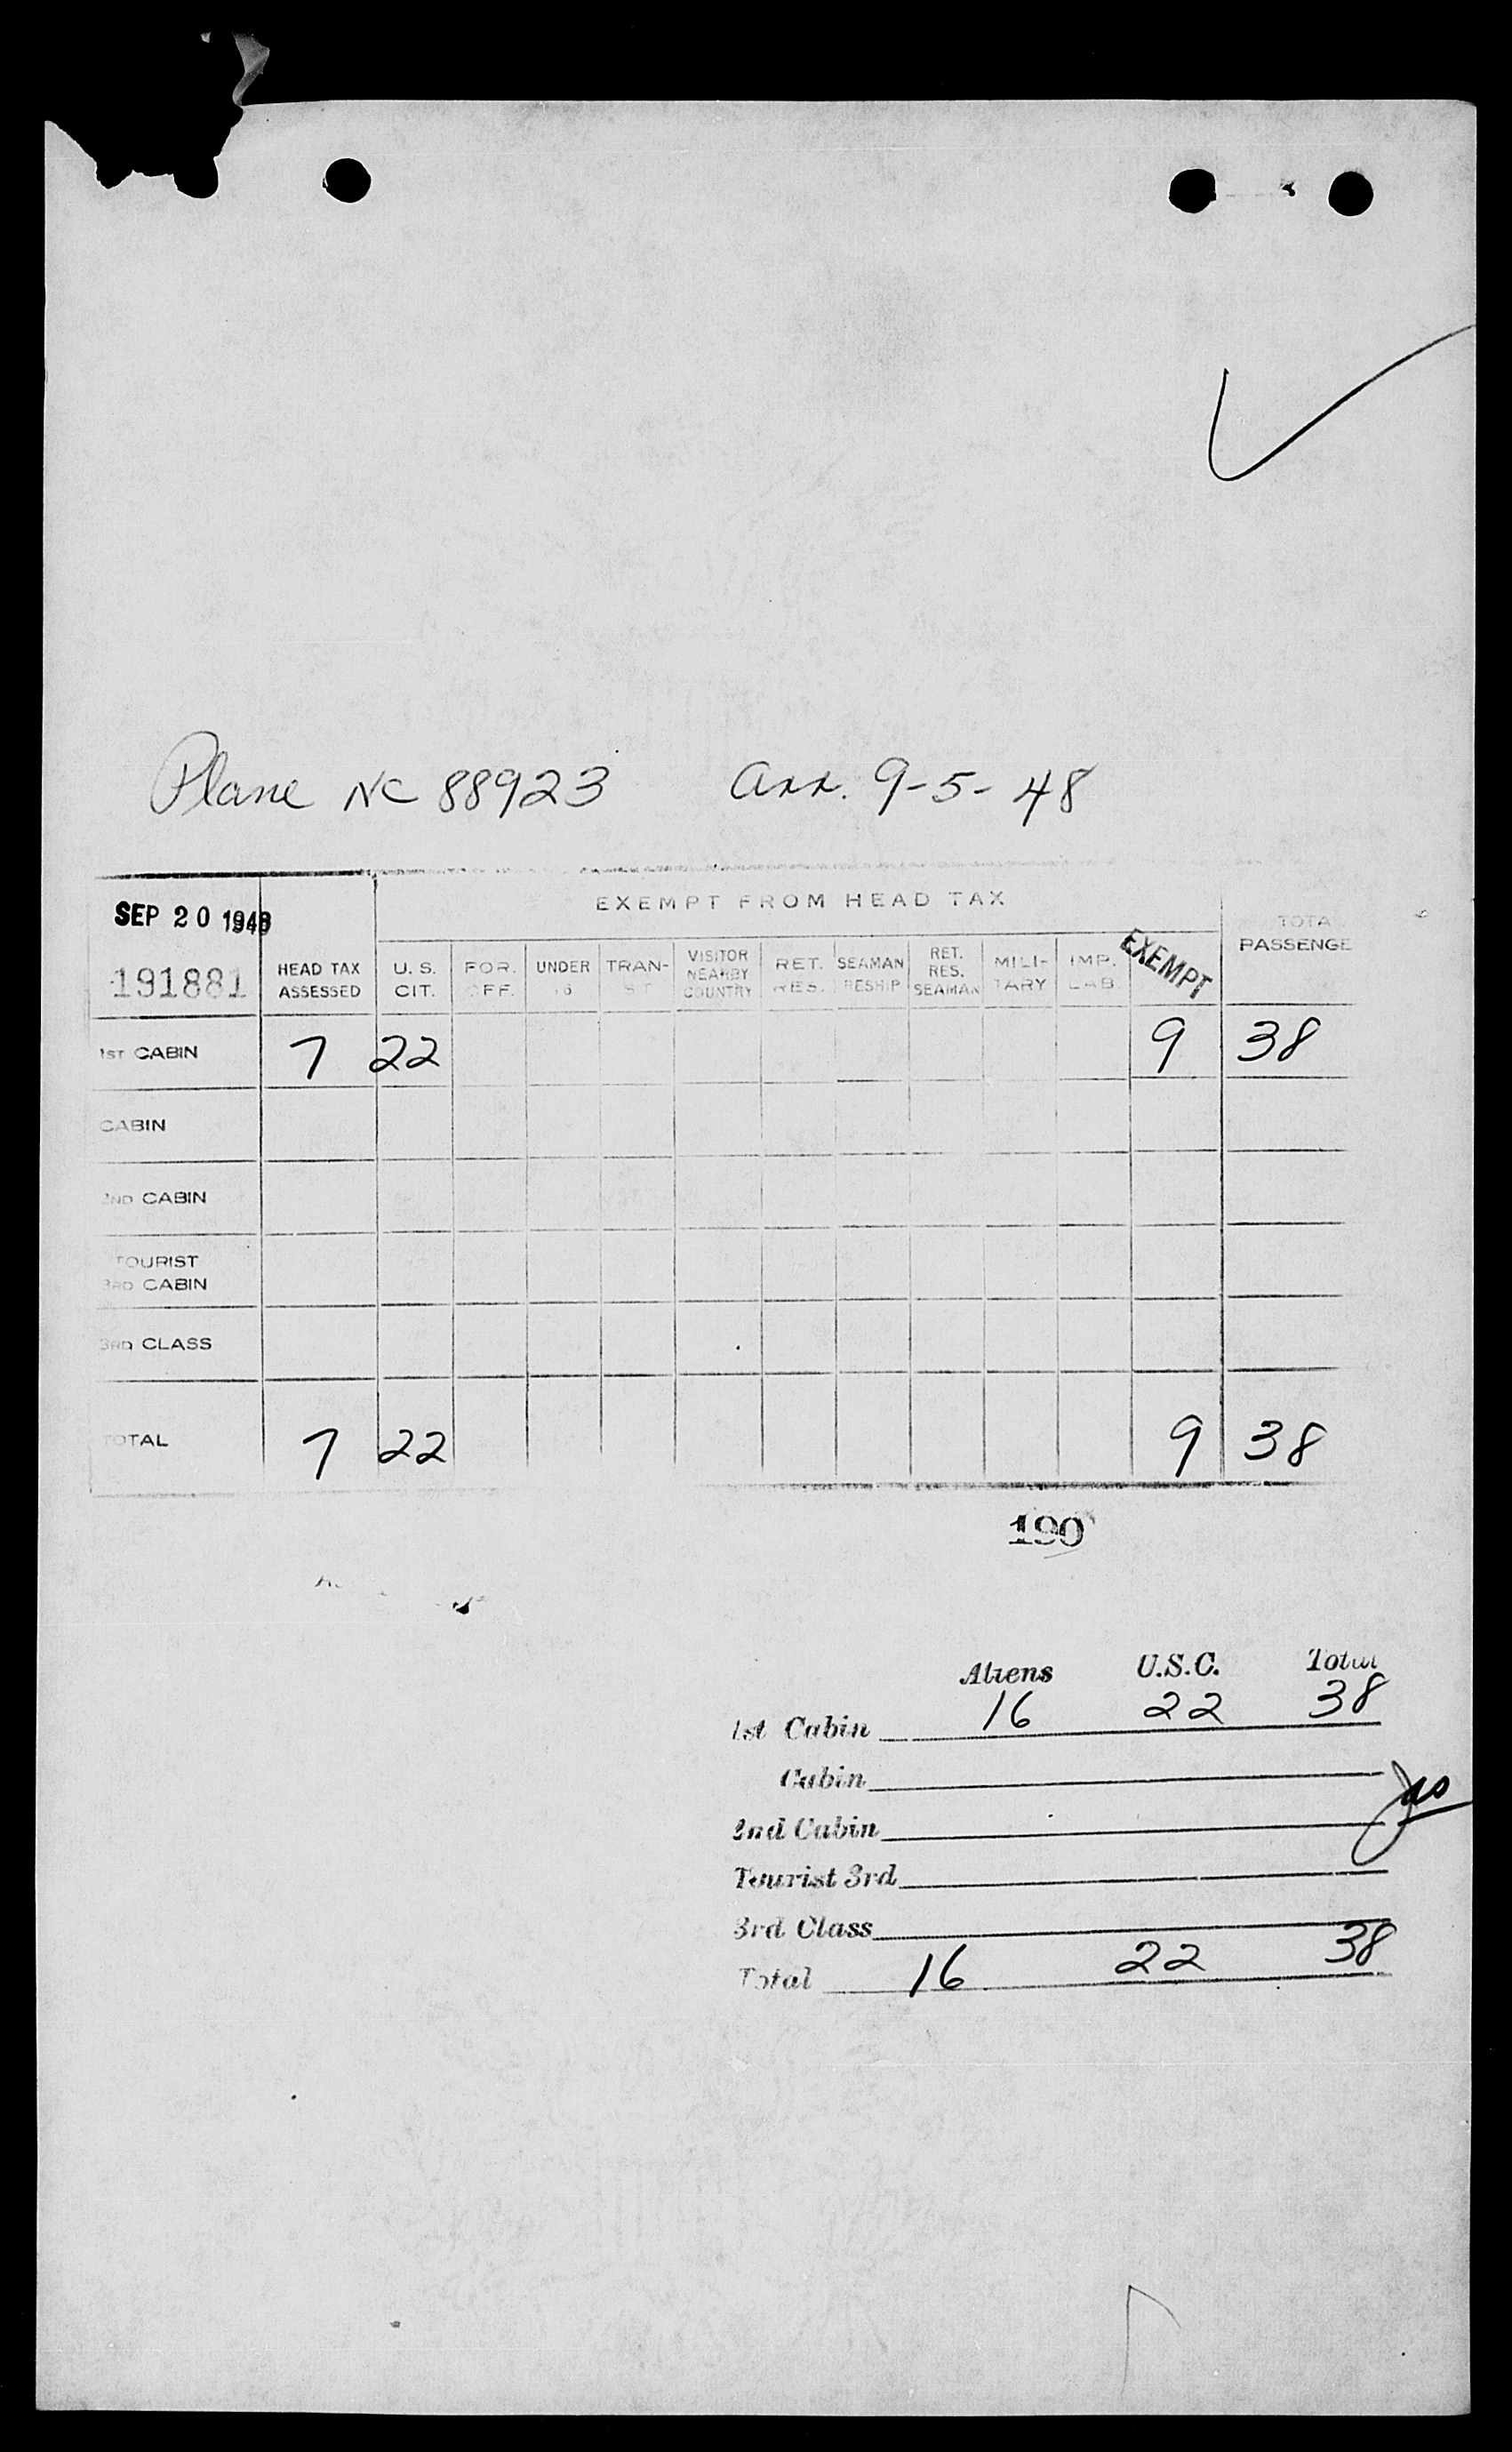 Plane NC 88923 Arr. 9-5-48
EXEMPT FROM HEAD TAX
SEP 20 1948
191881
HEAD TAX ASSESSED
U. S. CIT.
FOR. OFF.
UNDER 16
TRAN-
VISITOR NEARBY COUNTRY
RET. RES.
SEAMAN RESHIP
RET. RES. SEAMAN
MILI- TARY
IMP. LAB.
EXEMPT
TOTA PASSENGE
1ST CABIN 7 22 9 38
CABIN
2ND CABIN
TOURIST
3RD CABIN
3RD CLASS
TOTAL 7 22 9 38
190
Aliens U.S.C. Total
1st Cabin 16 22 38
Cabin
2nd Cabin
Tourist 3rd
3rd Class
Total 16 22 38